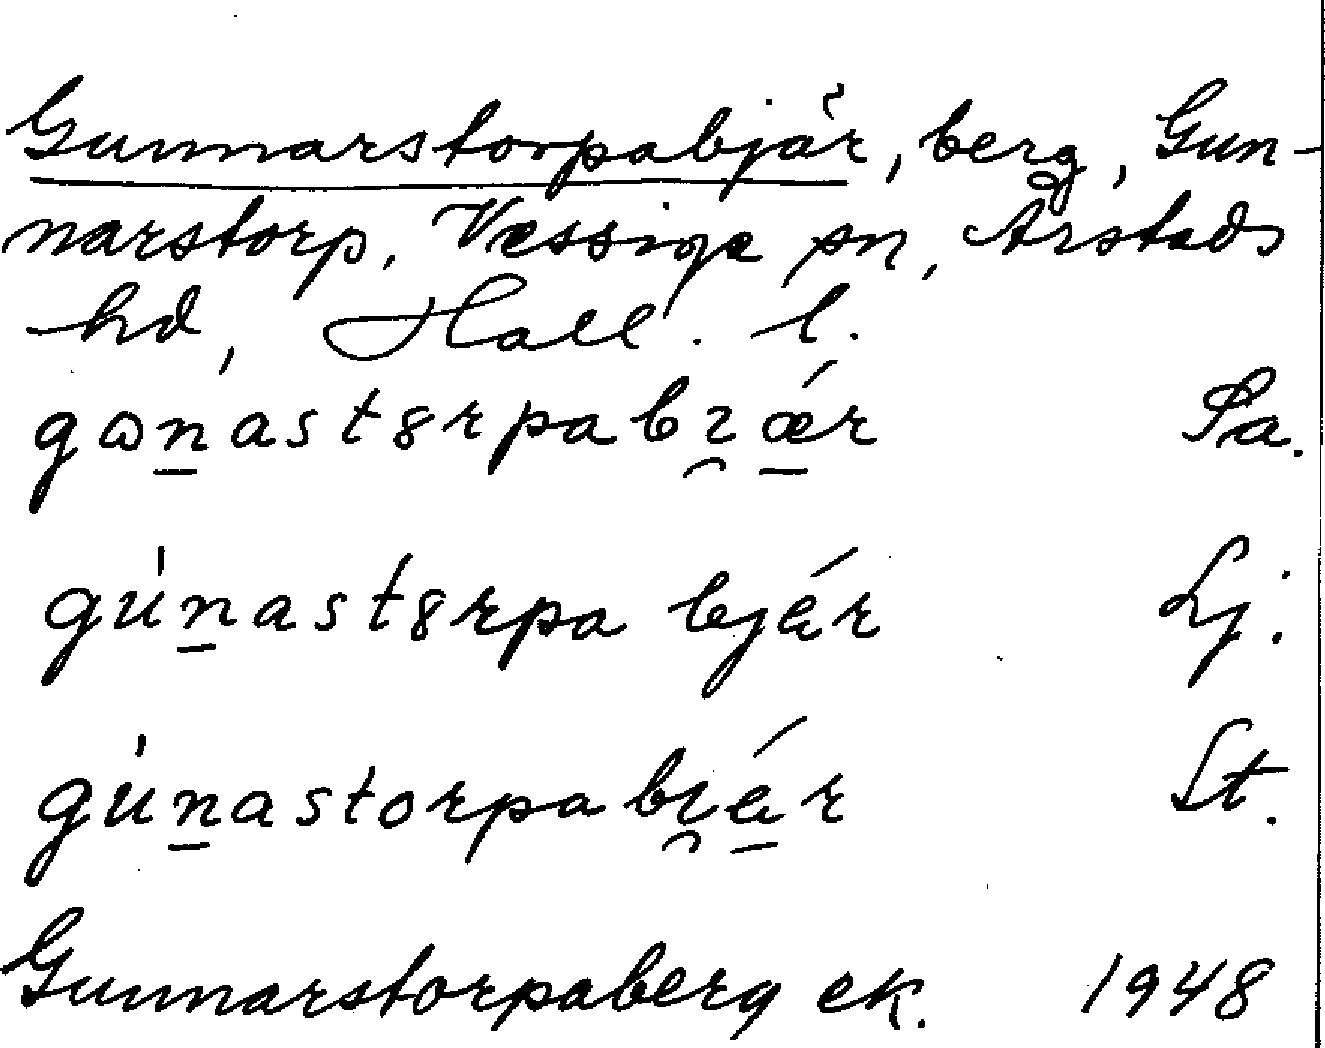 Gunnarstorpabjär, berg, Gun-
narstorp, Vessige sn, Årstads
hd, Hall. l.
gωn̲astȣrpabɿ̯ǽ̲r Sa.
gu̍n̲astȣrpa bjá̲r Lj.
gu̍n̲astorpabɿ̯á̲r St.
Gunnarstorpaberg ek. 1948